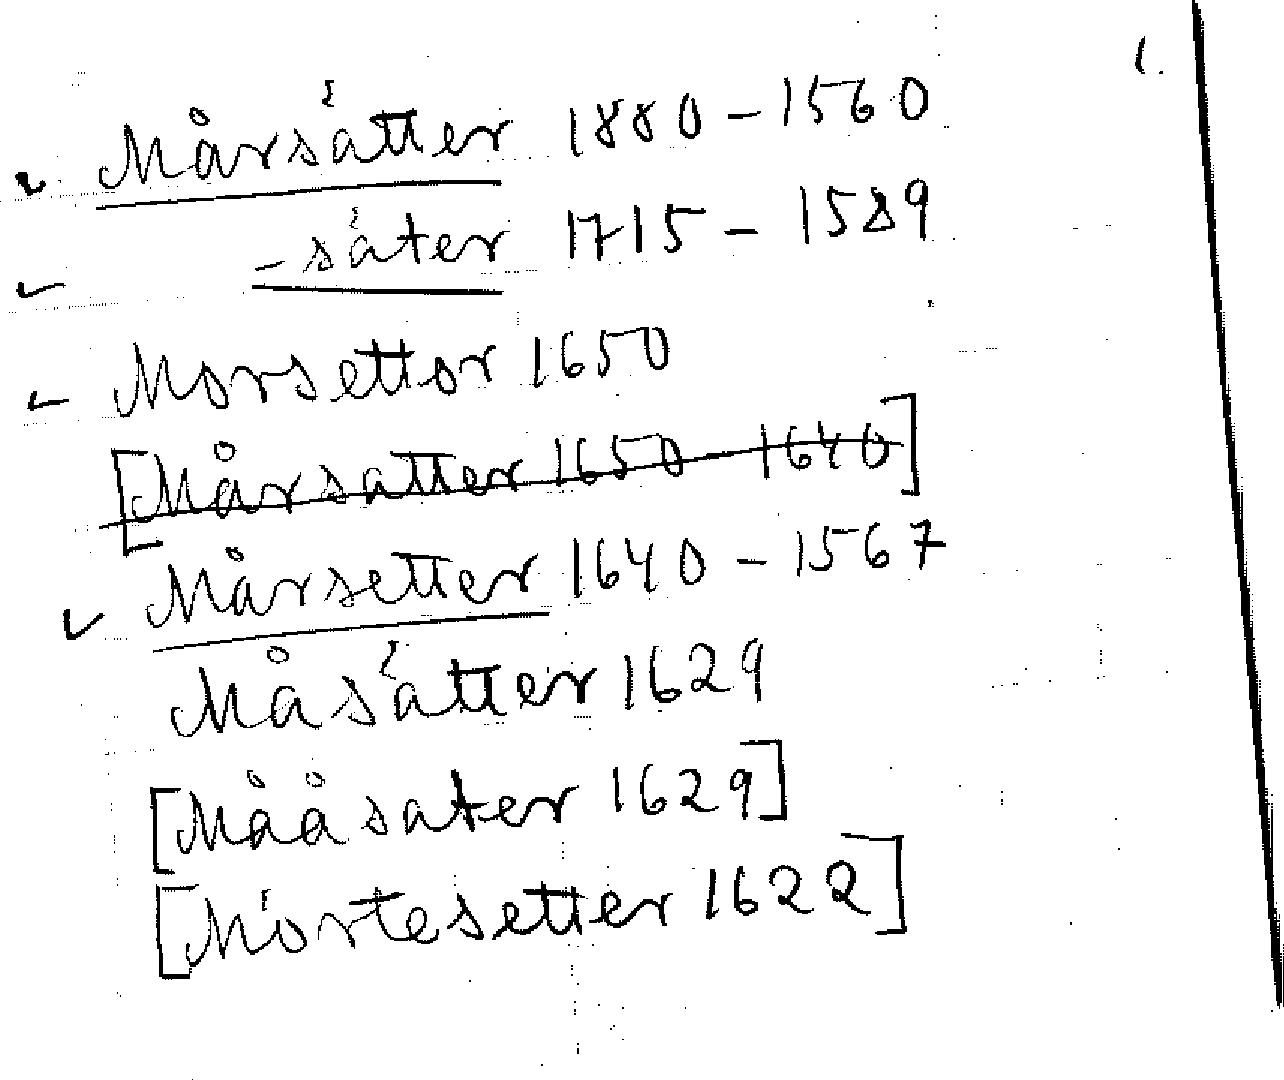 1.
Mårsätter 1880-1560
-säter 1715-1589
Morsettor 1650
[Mårsatter 1650-1640]
Mårsetter 1640-1567
Måsätter 1629
[Mååsater 1629]
[Mörtesetter 1622]